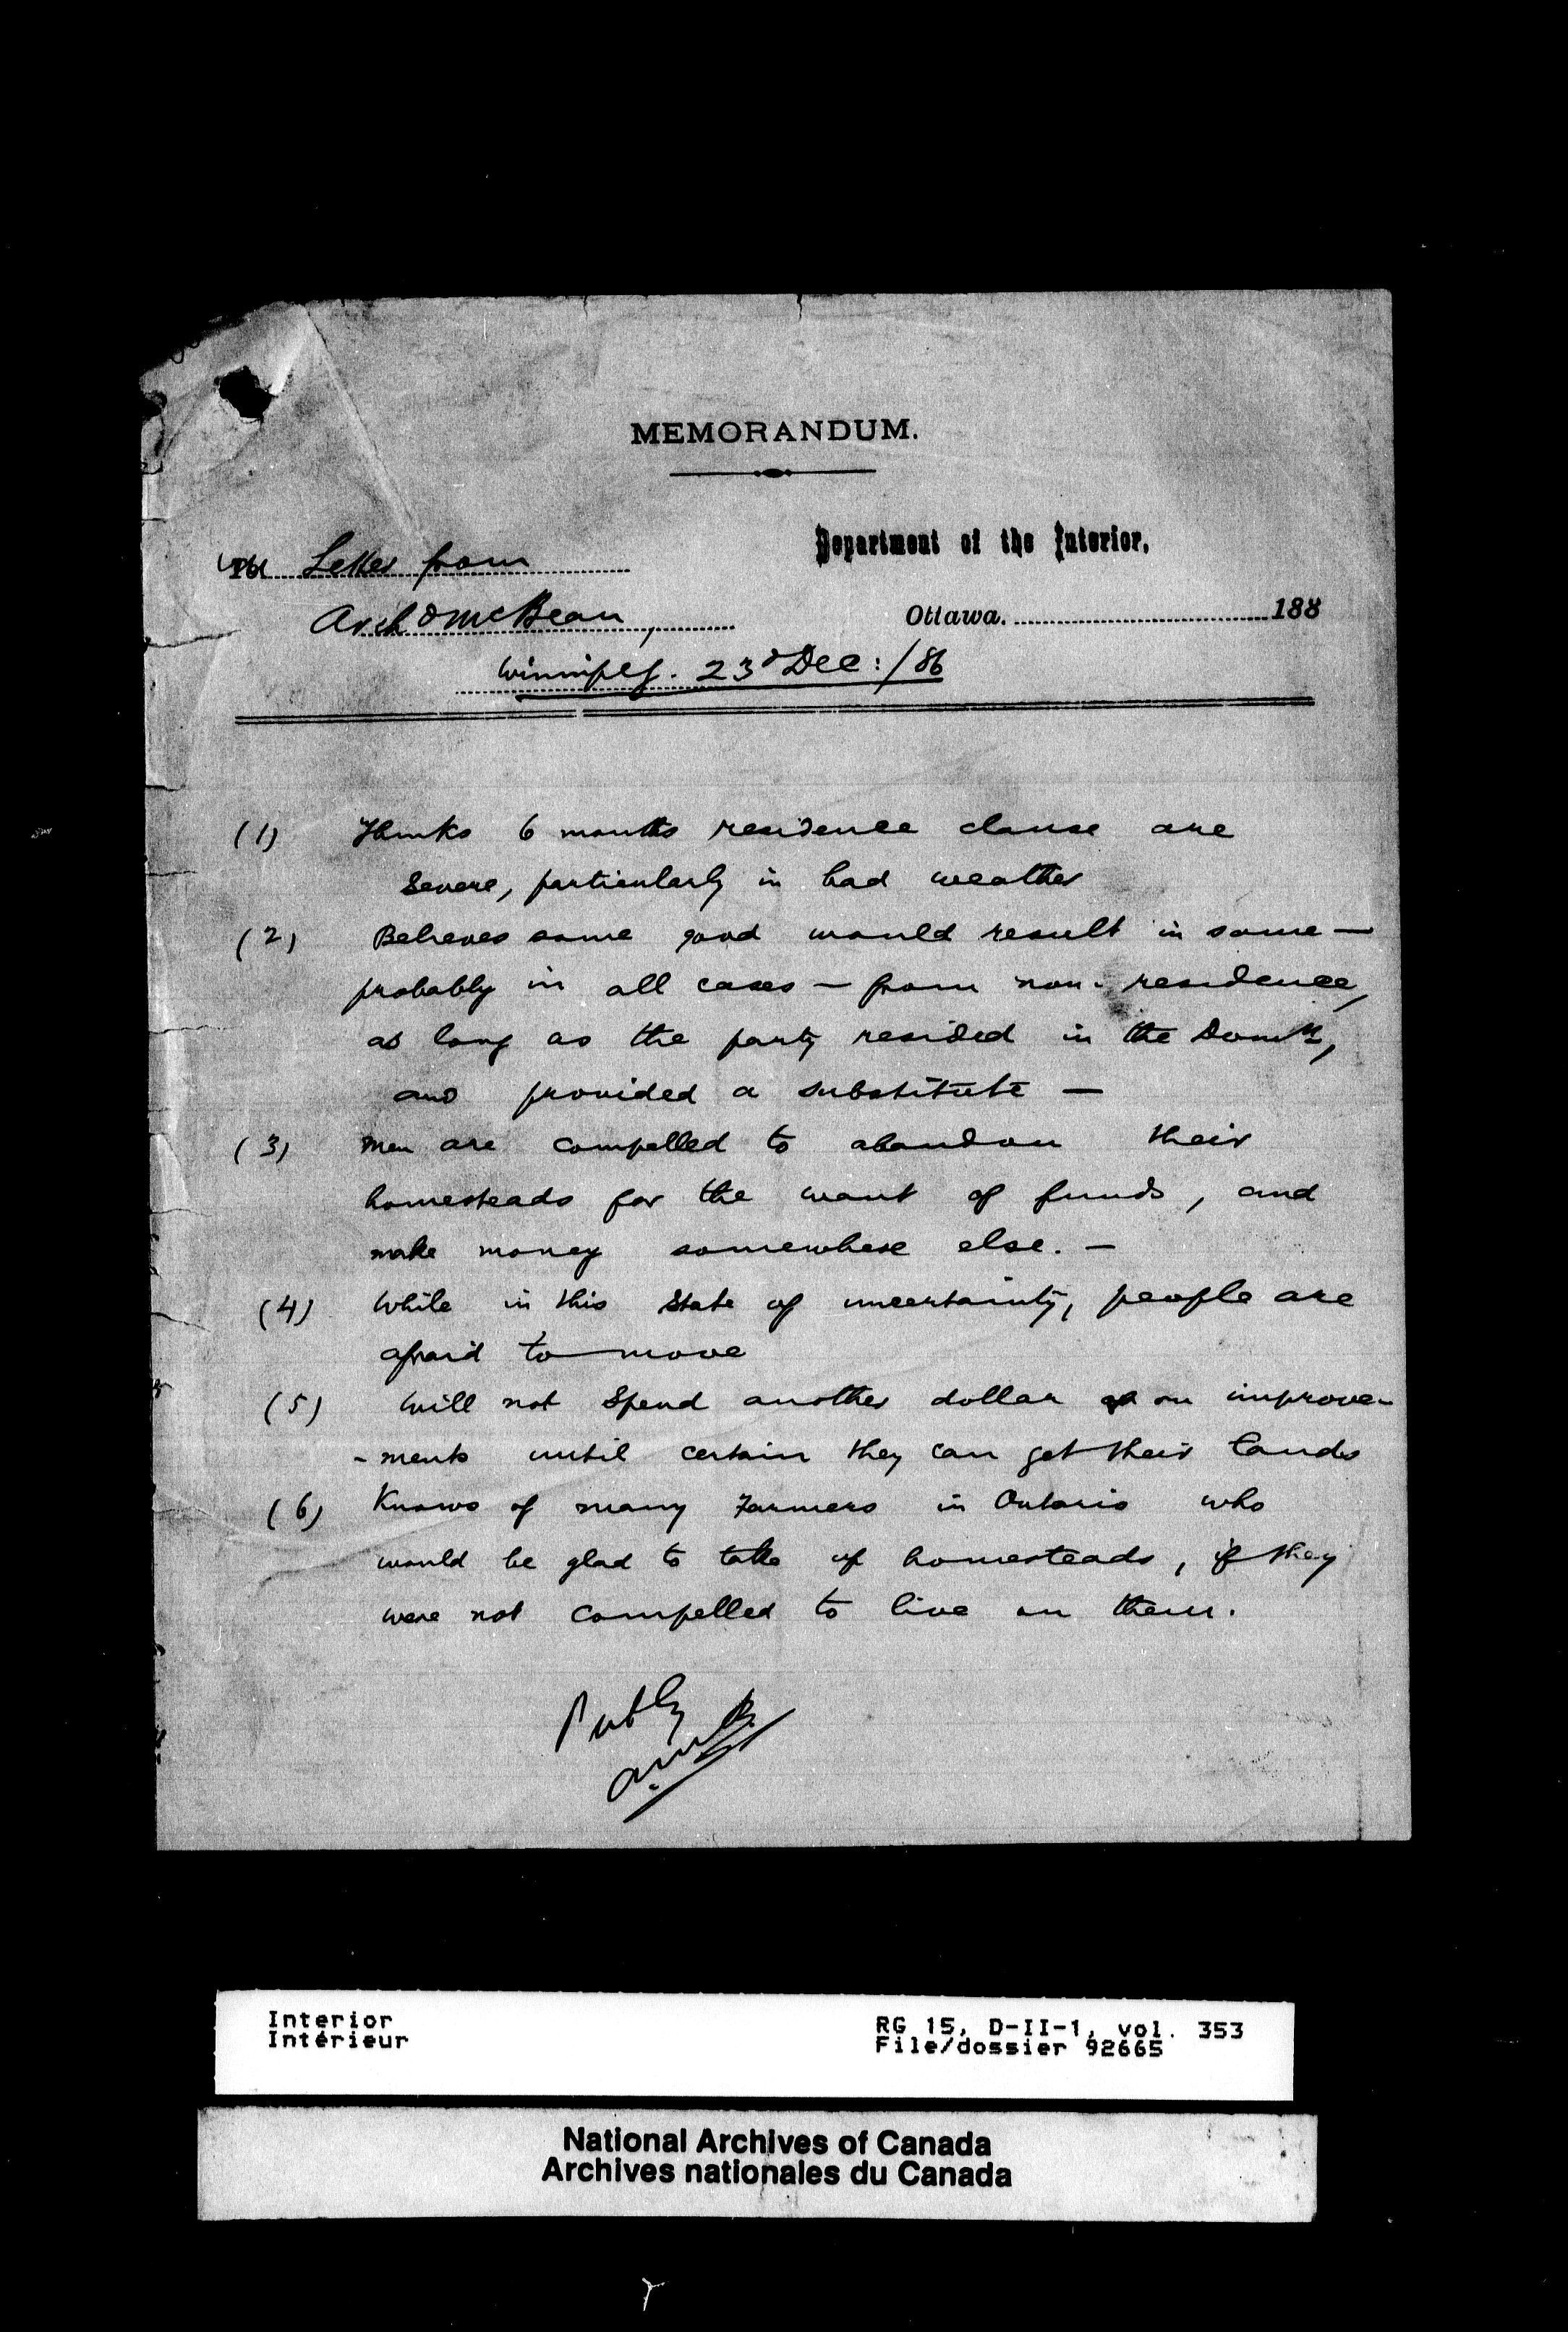 MEMORANDUM.
Department of the Interior,
Letter from
Archd McBean,
Ottawa. 188
Winnipeg. 23d Dec: /86
(1) Thinks 6 months residence clause are
severe, particularly in bad weather
(2) Believes some good would result in some —
probably in all cases — from non-residence,
as long as the party resided in the Domn,
and provided a substitute —
(3) Men are compelled to abandon their
homesteads for the want of funds, and
make money somewhere else. —
(4) While in this State of uncertainty, people are
afraid to move
(5) Will not Spend another dollar on improve-
-ments until certain they can get their lands
(6) Knows of many Farmers in Ontario who
would be glad to take up homesteads, if they
were not compelled to live on them.
Interior
Intérieur
RG 15, D-II-1, vol. 353
File/dossier 92665
National Archives of Canada
Archives nationales du Canada